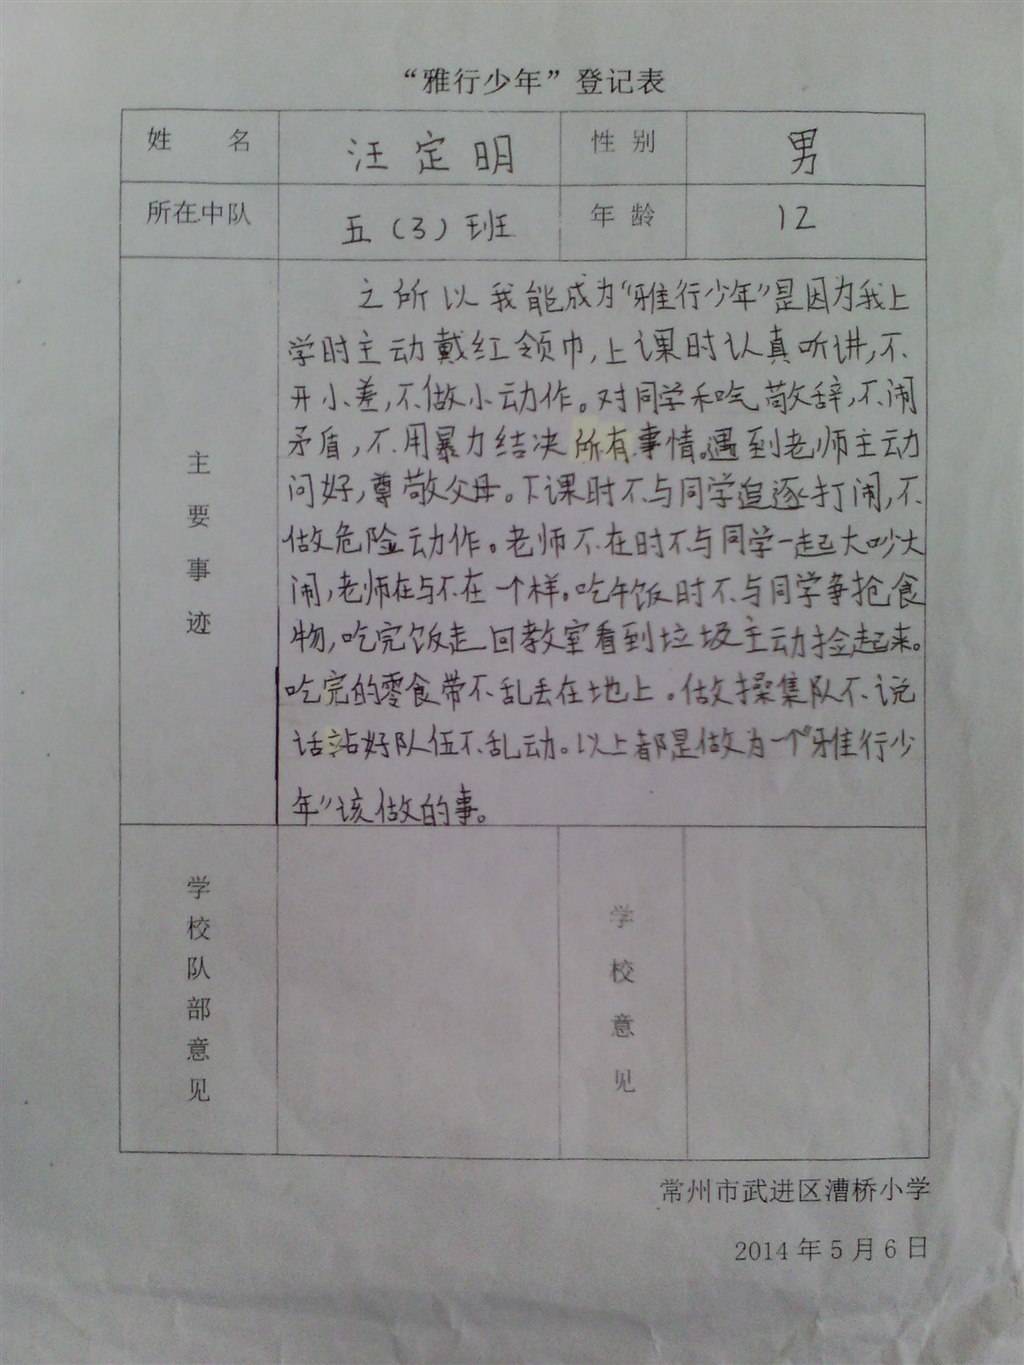 “雅行少年”登记表
姓 名 汪定明 性 别 男
所在中队 五（3）班 年 龄 12
主要事迹
之所以我能成为“雅行少年”是因为我上
学时主动戴红领巾，上课时认真听讲，不
开小差，不做小动作。对同学和吃苟攵辞，不闹
矛盾，不用暴力结决所有事情。遇到老师主动
问好，尊敬父母。下课时不与同学追逐打闹，不
做危险动作。老师不在时不与同学一起大吵大
闹，老师在与不在一个样。吃午饭时不与同学争抢食
物，吃完饭走回教室看到垃圾主动捡起来。
吃完的零食带不乱丢在地上。做操集队不说
话站好队伍不乱动。以上都是做为一个“雅行少
年”该做的事。
学校队部意见
学校意见
常州市武进区漕桥小学
2014年5月6日